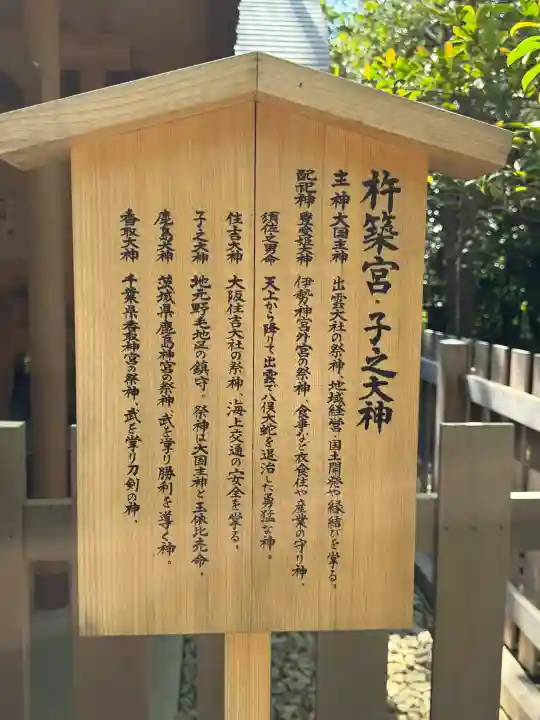 杵築宮・子之大神
主神 大国主神 出雲大社の祭神、地域経営・国土開発や縁結びを掌る。
配祀神 豊受姫大神 伊勢神宮外宮の祭神、食事など衣食住や産業の守り神、
須佐之男命 天上から降りて出雲で八俣大蛇を退治した勇猛な神。
住吉大神 大阪住吉大社の祭神、海上交通の安全を掌る。
子之大神 地元野毛地区の鎮守。祭神は大国主神と玉依比売命。
鹿島大神 茨城県鹿島神宮の祭神、武を掌り勝利を導く神。
香取大神 千葉県香取神宮の祭神、武を掌り刀剣の神、